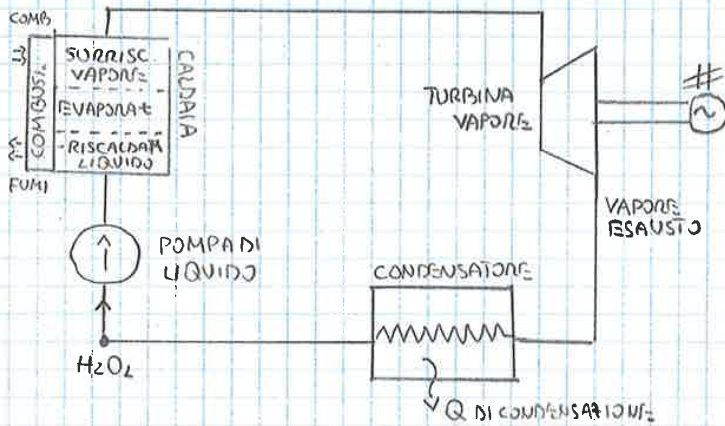 COMB
COMBUSt.
SURRISC.
VAPORE
EVAPORAt
RISCALDAM
LIQUIDO
CALDAIA
FUMI
TURBINA
VAPORE
VAPORE
ESAUSTO
POMPA DI
LIQUIDO
CONDENSATORE
H2OL
Q DI CONDENSAZIONE